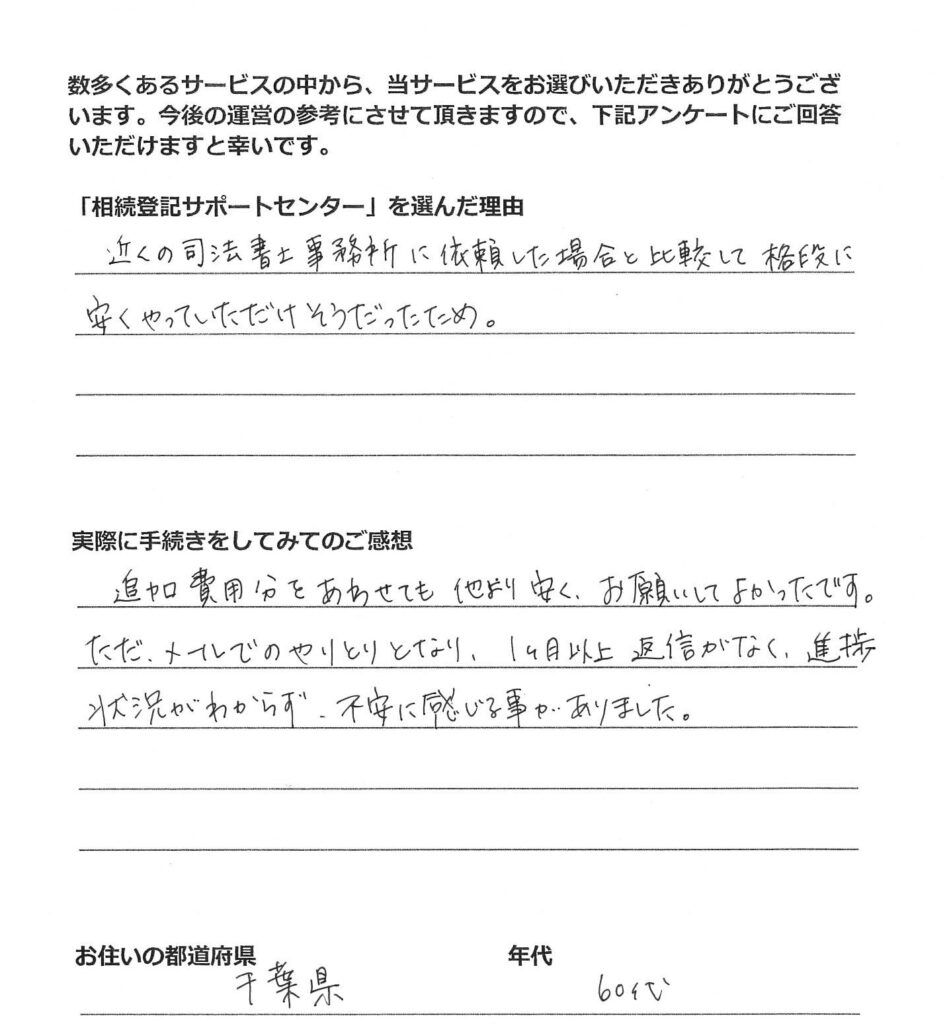 数多くあるサービスの中から、当サービスをお選びいただきありがとうござ
います。今後の運営の参考にさせて頂きますので、下記アンケートにご回答
いただけますと幸いです。
「相続登記サポートセンター」を選んだ理由
近くの司法書士事務所に依頼した場合と比較して格段に
安くやっていただけそうだったため。
実際に手続きをしてみてのご感想
追加費用分をあわせても他より安く、お願いしてよかったです。
ただ、メールでのやりとりとなり、1ヶ月以上返信がなく、進捗
状況がわからず、不安に感じる事がありました。
お住いの都道府県 年代
千葉県 60代